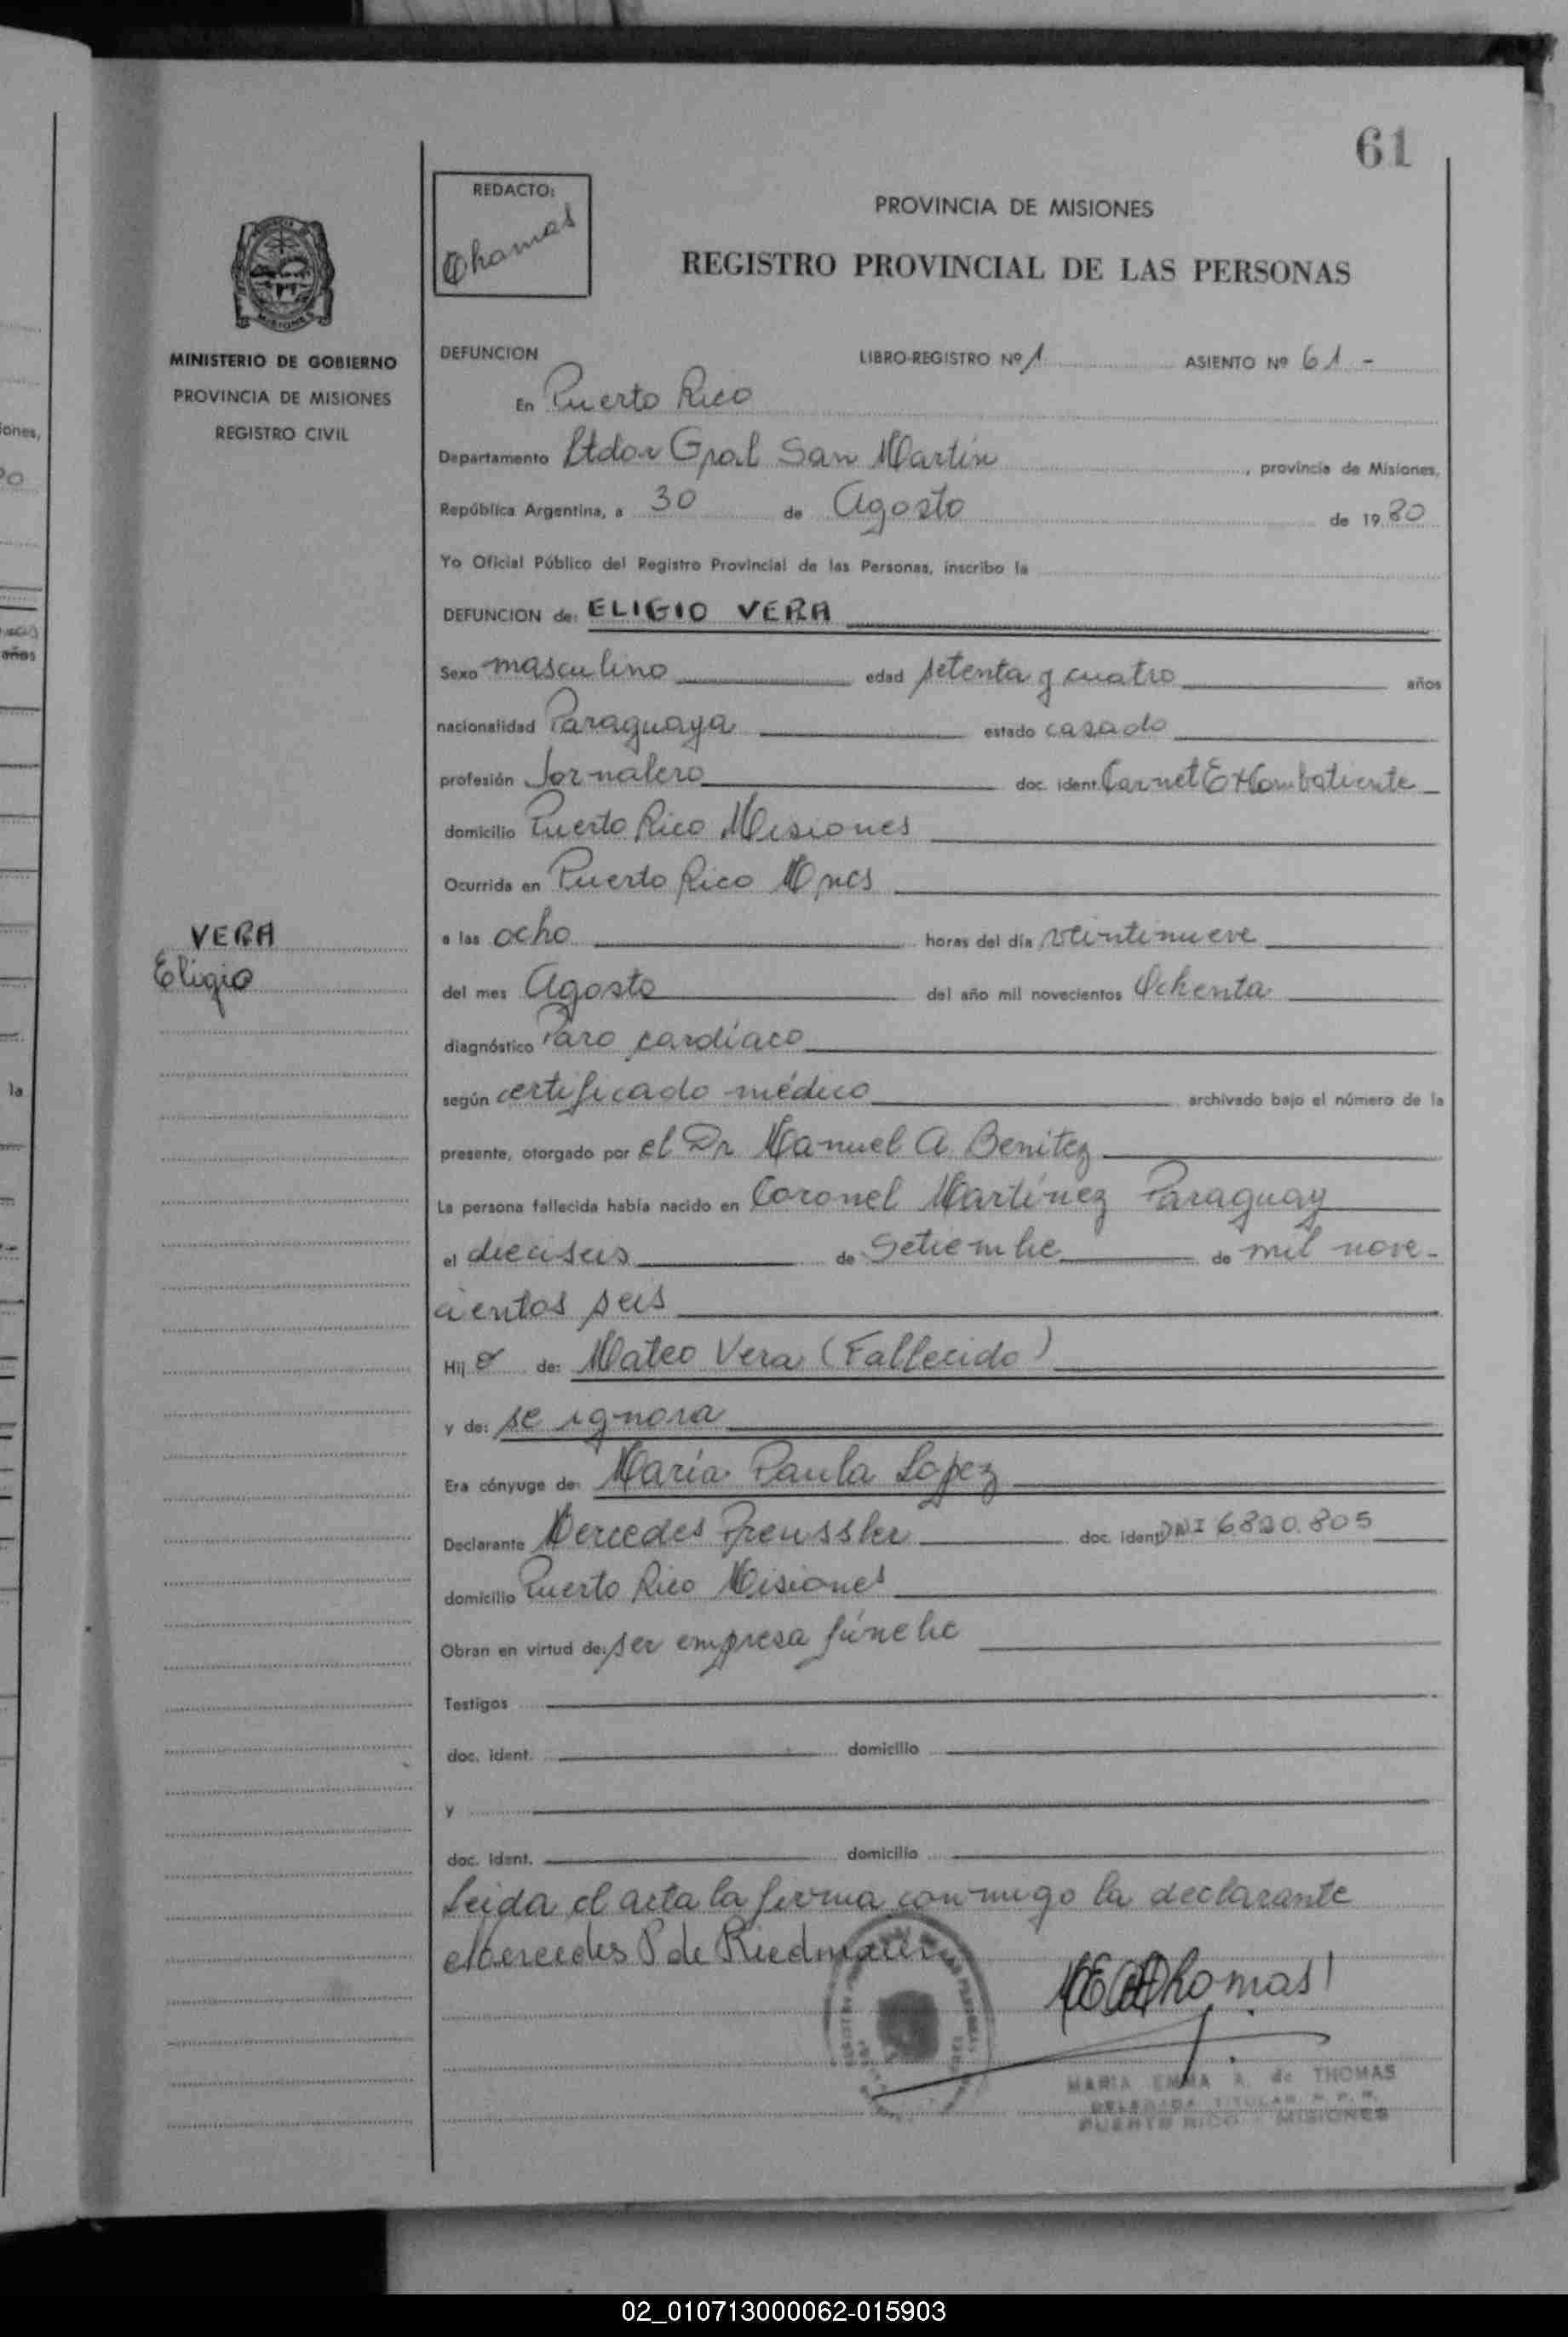 61
REDACTO:
Thomas
PROVINCIA DE MISIONES
REGISTRO PROVINCIAL DE LAS PERSONAS
MINISTERIO DE GOBIERNO
PROVINCIA DE MISIONES
REGISTRO CIVIL
DEFUNCION LIBRO-REGISTRO Nº 1 ASIENTO Nº 61 -
En Puerto Rico
Departamento Ltdor Gral San Martín, provincia de Misiones,
República Argentina, a 30 de Agosto de 19 80
Yo Oficial Público del Registro Provincial de las Personas, inscribo la
DEFUNCION de: ELIGIO VERA
Sexo masculino edad setenta y cuatro años
nacionalidad Paraguaya estado casado
profesión Jornalero doc. ident. Carnet ExCombatiente
domicilio Puerto Rico Misiones
Ocurrida en Puerto Rico Mnes
VERA
Eligio
a las ocho horas del día veintinueve
del mes Agosto del año mil novecientos Ochenta
diagnóstico Paro cardíaco
según certificado médico archivado bajo el número de la
presente, otorgado por el Dr Manuel A. Benitez
La persona fallecida había nacido en Coronel Martínez Paraguay
el dieciseis de Setiembre de mil nove-
cientos seis
Hij o de: Mateo Vera (Fallecido)
y de: se ignora
Era cónyuge de: María Paula Lopez
Declarante Mercedes Preussler doc. ident. DNI 6.820.805
domicilio Puerto Rico Misiones
Obran en virtud de: ser empresa fúnebre
Testigos
doc. ident. domicilio
y
doc. ident. domicilio
Leida el acta la firma conmigo la declarante
Mercedes P de Riedmaier
Thomas
MARIA EMMA A. de THOMAS
DELEGADA TITULAR R. P. P.
PUERTO RICO - MISIONES
ones,
años
la
02_010713000062-015903